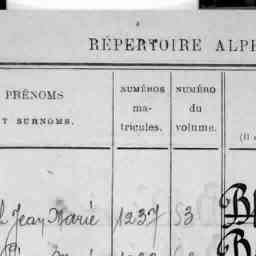 RÉPERTOIRE ALPH
PRÉNOMS
T SURNOMS.
NUMÉROS
ma-
tricules.
NUMÉRO
du
volume.
Jean Marie 1237 53